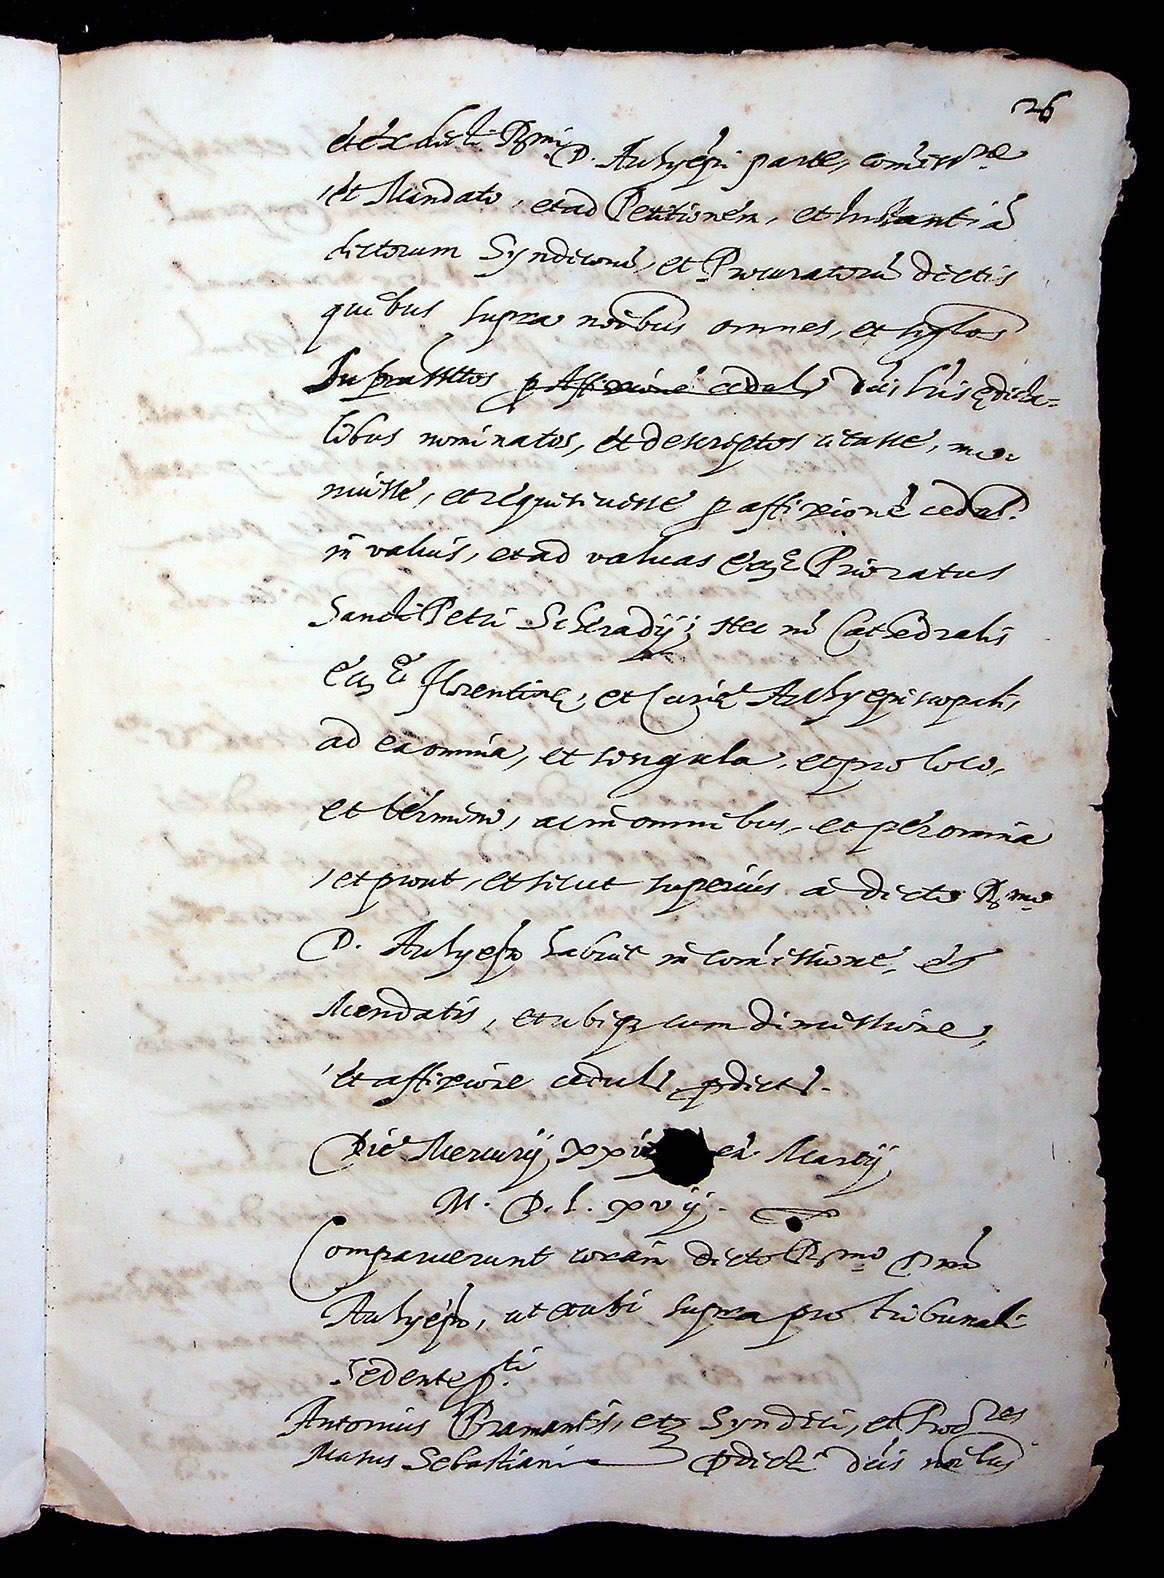 26
et ex dicti Rmi D. Archiepi parte, comissne
et Mandato, et ad Petitionem, et Instantiã
dictorum Syndicorũ, et Procuratorũ dictis
quibus supra noĩbus omnes, et syglos
Suprascriptos p Affixionẽ cedule dĩis lr̃is edicta=
libus nominatos, et descriptos citasse, mo=
nuisse, et requisiuisse p affixionẽ cedul.
in valuis, et ad valuas Ecclę Prioratus
Sancti Petri Scheradij; Nec nõ Cathedralis
Ecclę florentinę, et Curię Archyepiscopalis,
ad ea omnia, et singula, et pro loco,
et termino, ac in omnibus, et per omnia
, et prout, et sicut superius a dicto Rmo
D. Archyepo habuit in comissione, et
Mandatis, et ubiq cum dimissione,
et affixione cedule pdicte.
Die Mercurij xxvj en Martij
M. D. L. xvij.
Comparuerunt coram dicto Rmo Dno
Archyepo, ut et ubi supra pro tribunali
sedente pti
Antonius Bramantis, et Syndici, et Procres
Marus Sebastiani pdicti dĩis noĩbus